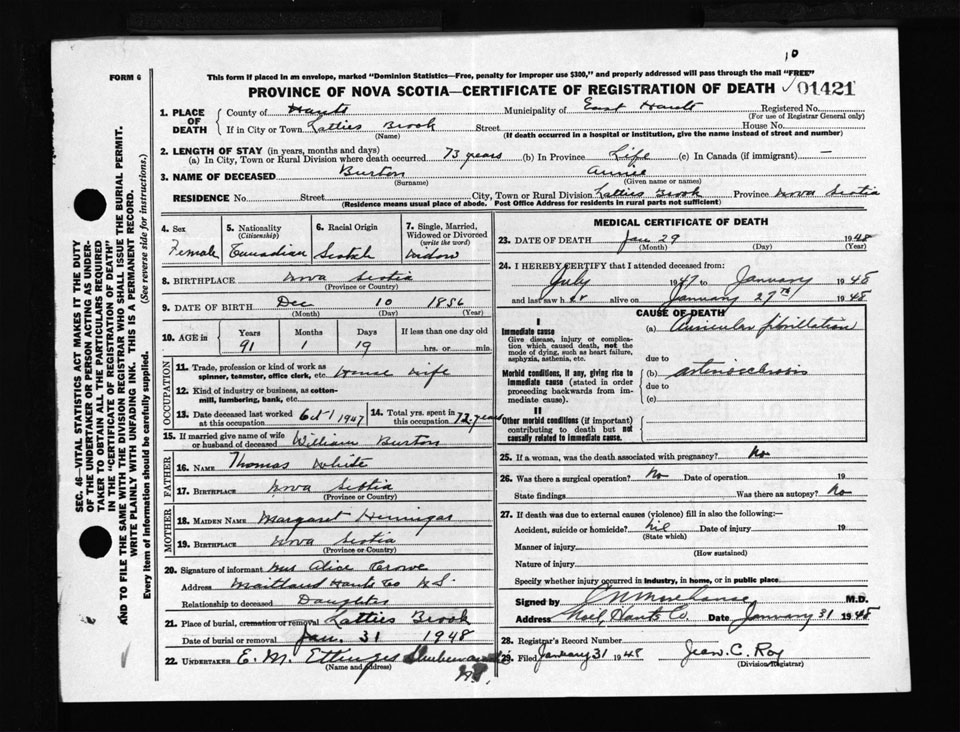 10
FORM 6
This form if placed in an envelope, marked "Dominion Statistics—Free, penalty for improper use $300," and properly addressed will pass through the mail "FREE"
PROVINCE OF NOVA SCOTIA—CERTIFICATE OF REGISTRATION OF DEATH 01421
1. PLACE OF DEATH County of Hants Municipality of East Hants Registered No.
(For use of Registrar General only)
If in City or Town Latties Brook Street House No.
(Name) (If death occurred in a hospital or institution, give the name instead of street and number)
2. LENGTH OF STAY (in years, months and days)
(a) In City, Town or Rural Division where death occurred 73 years (b) In Province Life (c) In Canada (if immigrant) —
3. NAME OF DECEASED Burton Annie
(Surname) (Given name or names)
RESIDENCE No. Street City, Town or Rural Division Latties Brook Province Nova Scotia
(Residence means usual place of abode. Post Office Address for residents in rural parts not sufficient)
4. Sex 5. Nationality 6. Racial Origin 7. Single, Married, Widowed or Divorced
(Citizenship) (write the word)
Female Canadian Scotch Widow
8. BIRTHPLACE Nova Scotia
(Province or Country)
9. DATE OF BIRTH Dec 10 1856
(Month) (Day) (Year)
10. AGE in Years Months Days If less than one day old
91 1 19 hrs. or min.
OCCUPATION
11. Trade, profession or kind of work as spinner, teamster, office clerk, etc. House wife
12. Kind of industry or business, as cotton-mill, lumbering, bank, etc.
13. Date deceased last worked at this occupation Oct 1 1947 14. Total yrs. spent in this occupation 72 years
15. If married give name of wife or husband of deceased William Burton
FATHER
16. NAME Thomas White
17. BIRTHPLACE Nova Scotia
(Province or Country)
MOTHER
18. MAIDEN NAME Margaret Hennigar
19. BIRTHPLACE Nova Scotia
(Province or Country)
20. Signature of informant Mrs Alice Crowe
Address Maitland Hants Co N.S.
Relationship to deceased Daughter
21. Place of burial, cremation or removal Latties Brook
Date of burial or removal Jan. 31 1948
22. UNDERTAKER E. M. Ettinger Shubenacadie
(Name and address) N.S.
MEDICAL CERTIFICATE OF DEATH
23. DATE OF DEATH Jan 29 1948
(Month) (Day) (Year)
24. I HEREBY CERTIFY that I attended deceased from:
July 1947 to January 1948
and last saw her alive on January 27th 1948
CAUSE OF DEATH
I
Immediate cause (a) Auricular fibrillation
Give disease, injury or complication which caused death, not the mode of dying, such as heart failure, asphyxia, asthenia, etc.
due to
Morbid conditions, if any, giving rise to immediate cause (stated in order proceeding backwards from immediate).
(b) arteriosclerosis
due to
(c)
II
Other morbid conditions (if important) contributing to death but not causally related to immediate cause.
25. If a woman, was the death associated with pregnancy? No
26. Was there a surgical operation? No Date of operation 19
State findings Was there an autopsy? No
27. If death was due to external causes (violence) fill in also the following:—
Accident, suicide or homicide? Nil Date of injury 19
(State which)
Manner of injury
(How sustained)
Nature of injury
Specify whether injury occurred in industry, in home, or in public place
Signed by Morehouse M.D.
Address Noel, Hants Co. Date January 31 1948
28. Registrar's Record Number
29. Filed January 31 1948 Jean C. Roy
(Division Registrar)
SEC. 46—VITAL STATISTICS ACT MAKES IT THE DUTY
OF THE UNDERTAKER OR PERSON ACTING AS UNDER-
TAKER TO OBTAIN ALL THE PARTICULARS REQUIRED
IN THE "CERTIFICATE OF REGISTRATION OF DEATH"
AND TO FILE THE SAME WITH THE DIVISION REGISTRAR WHO SHALL ISSUE THE BURIAL PERMIT.
WRITE PLAINLY WITH UNFADING INK. THIS IS A PERMANENT RECORD.
Every item of information should be carefully supplied. (See reverse side for instructions.)